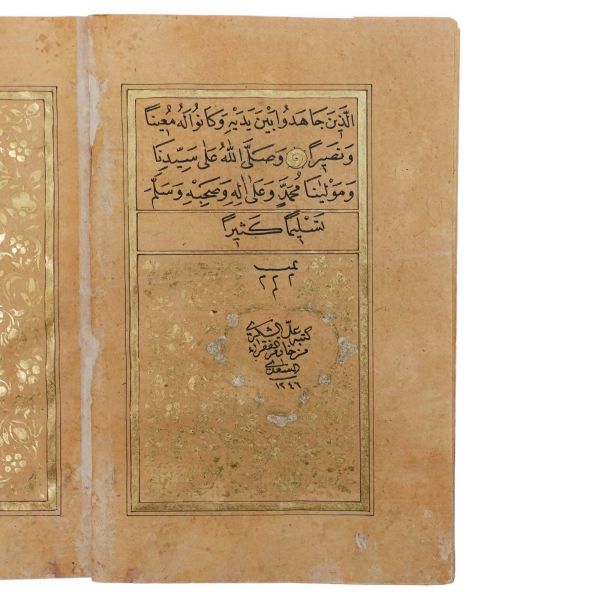 الَّذِينَ جَاهَدُوا بَيْنَ يَدَيْهِ وَكَانُوا لَهُ مُعِينًا
وَنَصِيرًا وَصَلَّى اللّٰهُ عَلٰى سَيِّدِنَا
وَمَوْلٰينَا مُحَمَّدٍ وَعَلٰى اٰلِهِ وَصَحْبِهِ وَسَلَّمَ
تَسْلِيمًا كَثِيرًا
كتبه على الشكرى
من خادم الفقراء
السعدى
١٢٤٦